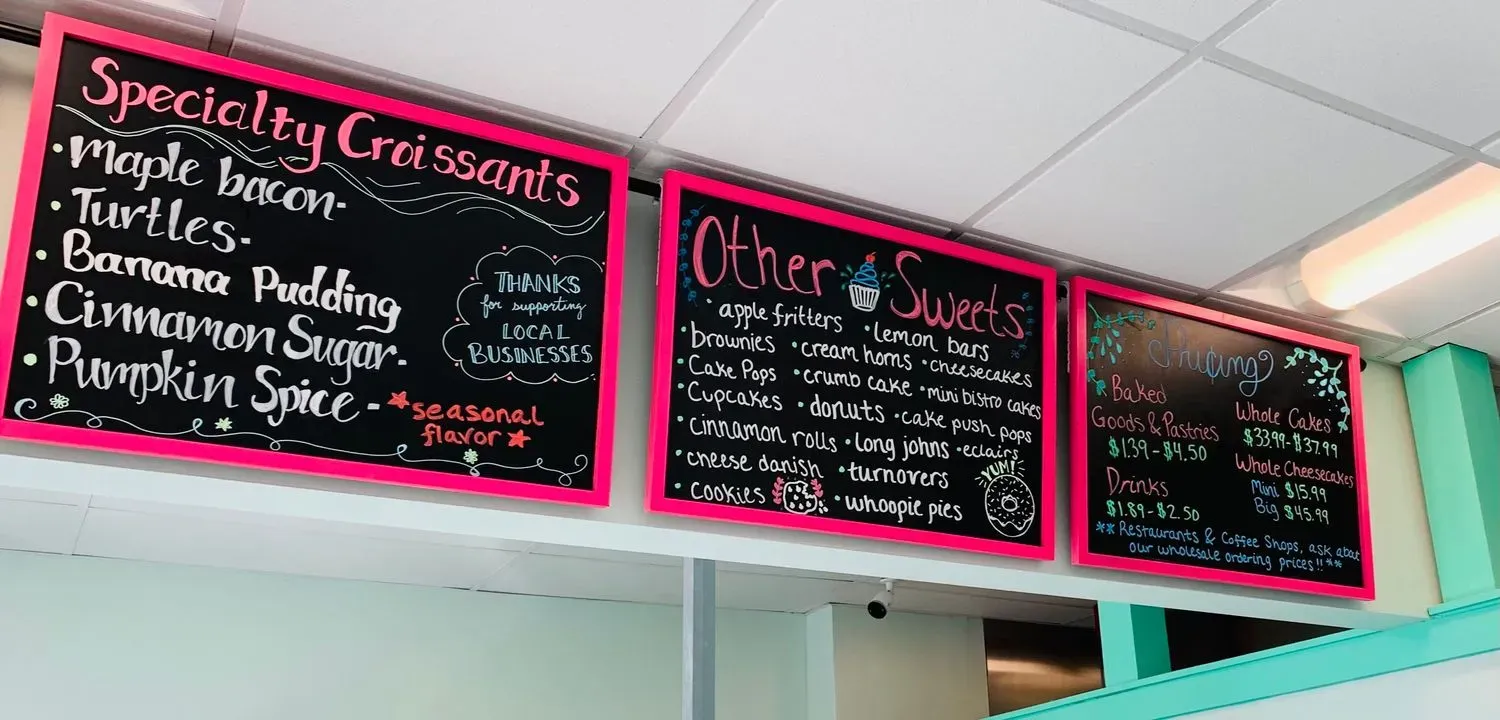 Specialty Croissants
• Maple bacon-
• Turtles-
• Banana Pudding
• Cinnamon Sugar-
• Pumpkin Spice - *seasonal
flavor*
THANKS
for supporting
LOCAL
BUSINESSES
Other Sweets
• apple fritters • lemon bars
• brownies • cream horns • cheesecakes
• Cake Pops • crumb cake • mini bistro cakes
• Cupcakes • donuts • cake push pops
• cinnamon rolls • long johns • eclairs
• cheese danish • turnovers
• cookies • whoopie pies
YUM!
Baked
Goods & Pastries
$1.39 - $4.50
Drinks
$1.89 - $2.50
Whole Cakes
$33.99-$37.99
Whole Cheesecakes
Mini $15.99
Big $45.99
** Restaurants & Coffee Shops, ask about
our wholesale ordering prices!! **